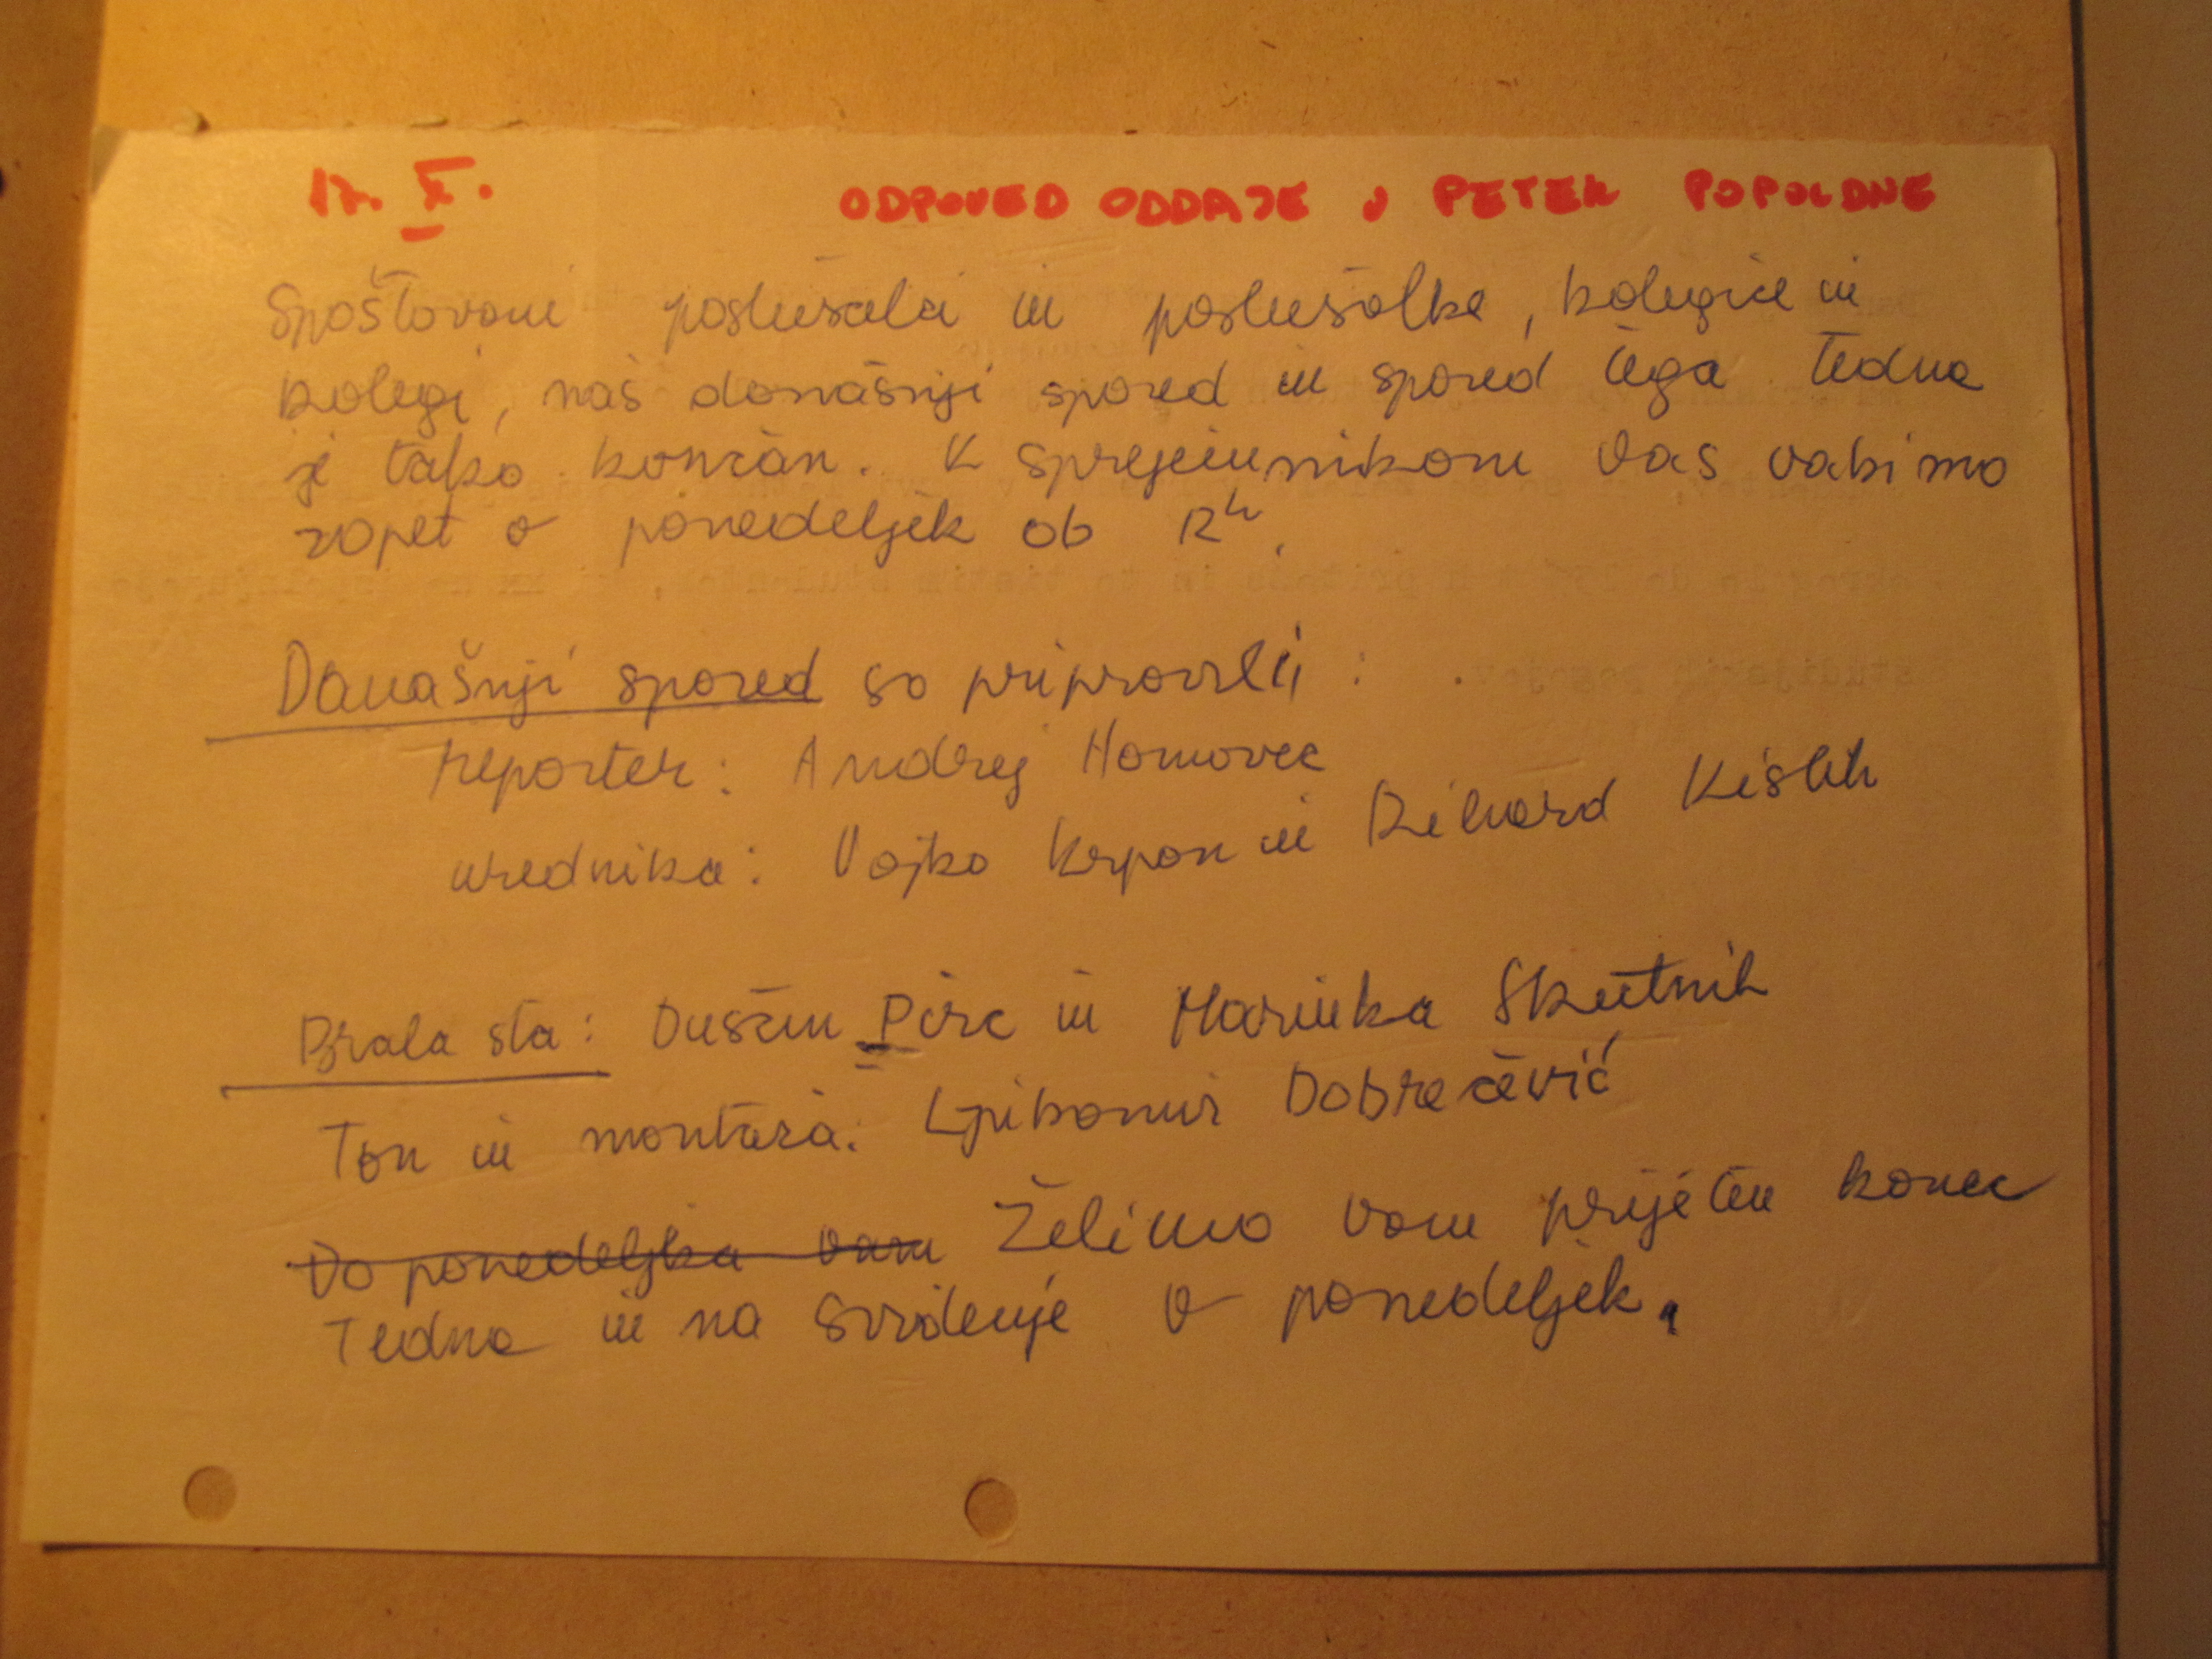 17. X. ODPOVED ODDAJE V PETEK POPOLDNE
Spoštovani poslušalci in poslušalke, kolegice in
kolegi, naš današnji spored in spored tega tedna
je tako končan. K sprejemnikom vas vabimo
zopet v ponedeljek ob 12h.
Današnji spored so pripravili:
reporter: Andrej
urednika: Vojko in Rihard
Brala sta: Dušan Pirc in Marinka Skutnik
Ton in montaža: Ljubomir Dobričević
Do ponedeljka vam Želimo vam prijeten konec
Tedna in na svidenje v ponedeljek.
studijskih pogojev.